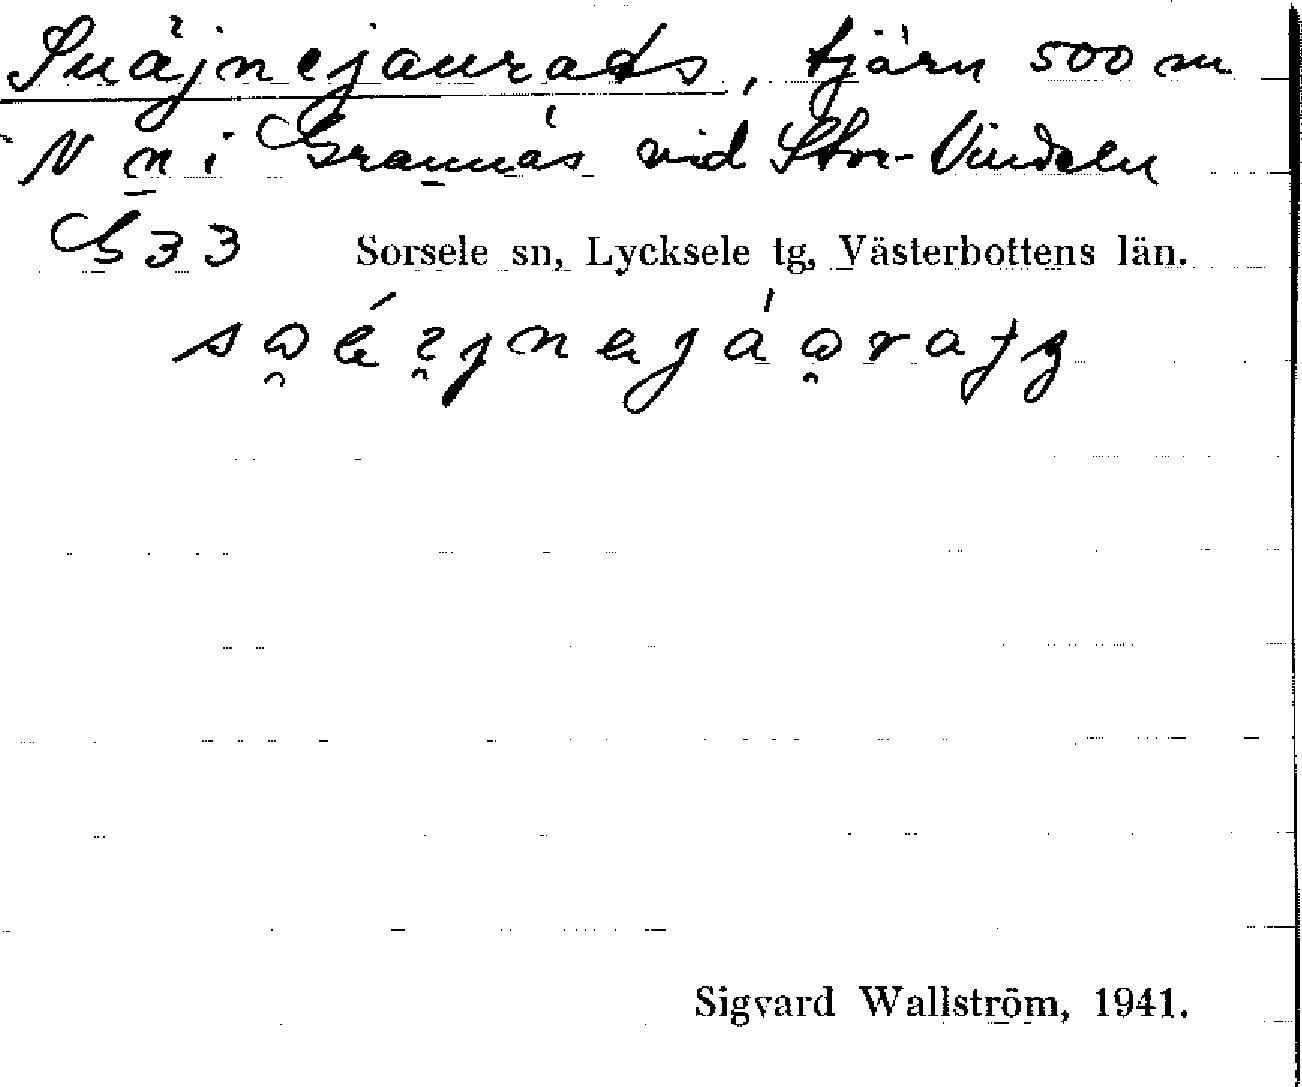 Suäjnejaurats, tjärn 500 m
N n i Grannäs vid Stor-Vindeln
G 33 Sorsele sn, Lycksele tg, Västerbottens län.
Sigvard Wallström, 1941.